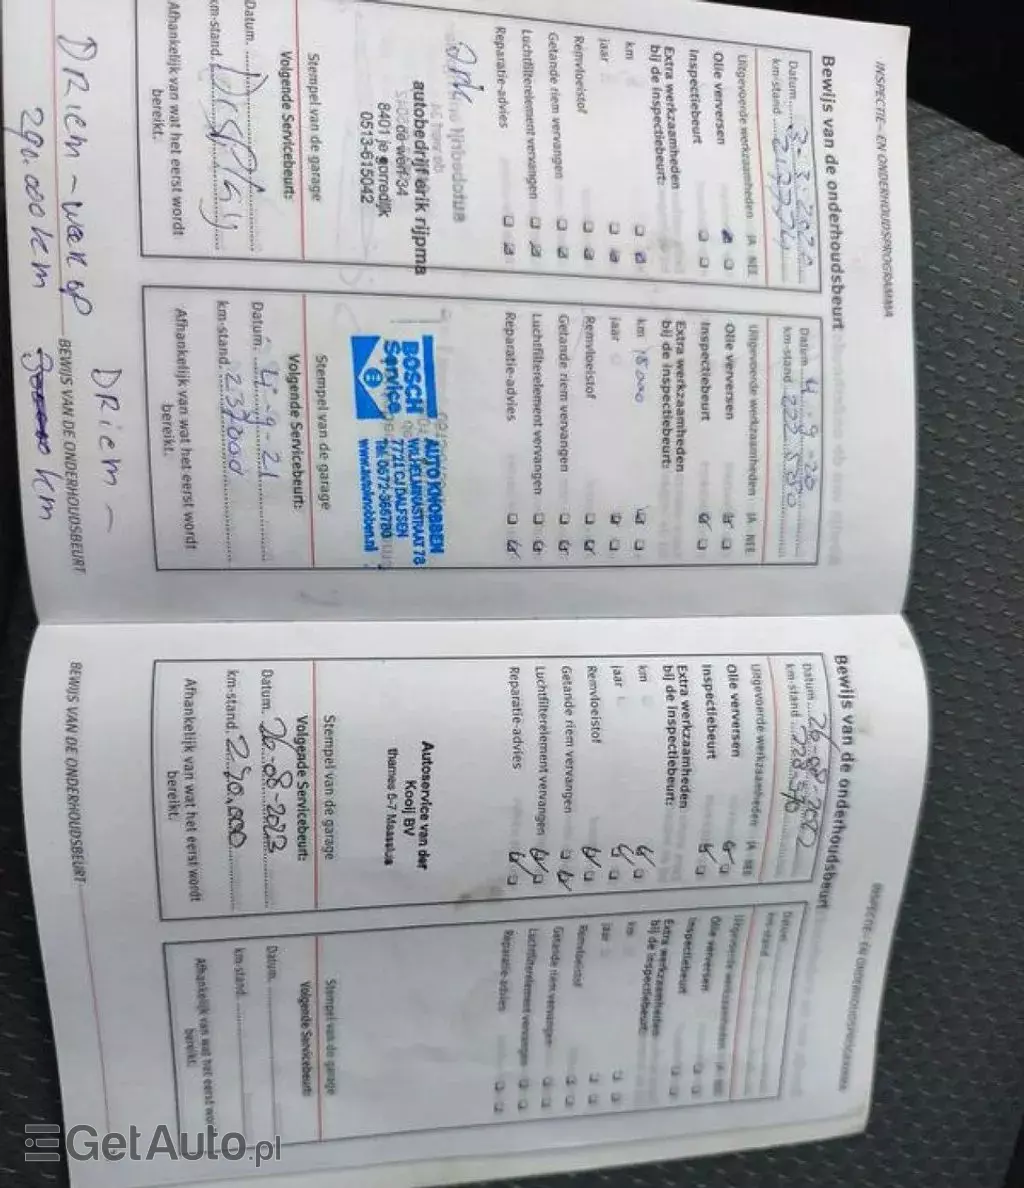 INSPECTIE- EN ONDERHOUDSPROGRAMMA
Bewijs van de onderhoudsbeurt
Datum
km-stand
Uitgevoerde werkzaamheden JA NEE
Olie verversen
Inspectiebeurt
Extra werkzaamheden
bij de inspectiebeurt:
km
jaar
Remvloeistof
Getande riem vervangen
Luchtfilterelement vervangen
Reparatie-advies
autobedrijf erik rijpma
8401 je gorredijk
0513-615042
Stempel van de garage
Volgende Servicebeurt:
Datum.
km-stand.
Afhankelijk van wat het eerst wordt
bereikt.
Datum 4-9-20
km-stand 222.550
Uitgevoerde werkzaamheden JA NEE
Olie verversen
Inspectiebeurt
Extra werkzaamheden
bij de inspectiebeurt:
km 15000
jaar
Remvloeistof
Getande riem vervangen
Luchtfilterelement vervangen
Reparatie-advies
BOSCH
Service
AUTO TOBBEN
WILHELMINASTRAAT 78
7721 CJ DALFSEN
Stempel van de garage
Volgende Servicebeurt:
Datum. 4-9-21
km-stand. 237000
Afhankelijk van wat het eerst wordt
bereikt.
BEWIJS VAN DE ONDERHOUDSBEURT
DRiem - WK op
DRiem -
290.000 km
km
INSPECTIE- EN ONDERHOUDSPROGRAMMA
Bewijs van de onderhoudsbeurt
Datum 26-08-2022
km-stand
Uitgevoerde werkzaamheden JA NEE
Olie verversen
Inspectiebeurt
Extra werkzaamheden
bij de inspectiebeurt:
km
jaar
Remvloeistof
Getande riem vervangen
Luchtfilterelement vervangen
Reparatie-advies
Autoservice van der
Kooij BV
thames 5-7 Maassluis
Stempel van de garage
Volgende Servicebeurt:
Datum. 26-08-2023
km-stand. 240.000
Afhankelijk van wat het eerst wordt
bereikt.
Datum
km-stand
Uitgevoerde werkzaamheden JA NEE
Olie verversen
Inspectiebeurt
Extra werkzaamheden
bij de inspectiebeurt:
km
jaar
Remvloeistof
Getande riem vervangen
Luchtfilterelement vervangen
Reparatie-advies
Stempel van de garage
Volgende Servicebeurt:
Datum.
km-stand.
Afhankelijk van wat het eerst wordt
bereikt.
BEWIJS VAN DE ONDERHOUDSBEURT
GetAuto.pl